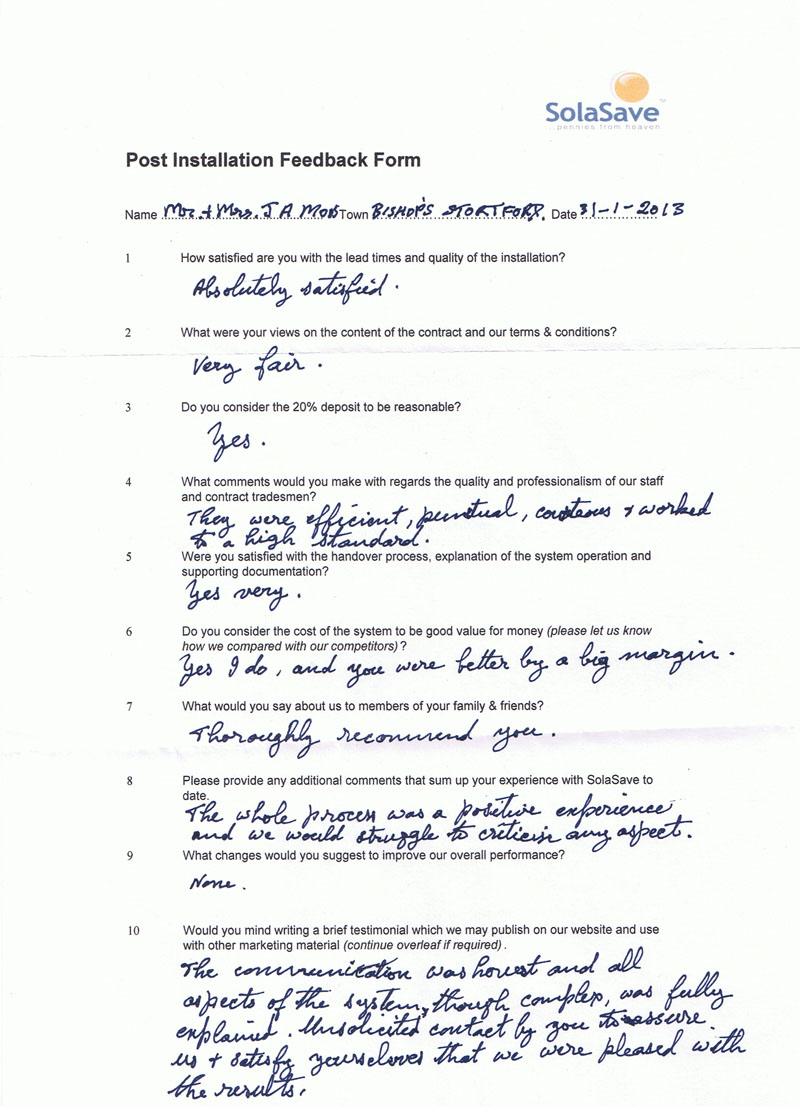 SolaSave™
...pennies from heaven
Post Installation Feedback Form
Name Mr. & Mrs. J A Town BISHOP'S STORTFORD. Date 31-1-2013
1 How satisfied are you with the lead times and quality of the installation?
Absolutely satisfied.
2 What were your views on the content of the contract and our terms & conditions?
Very fair.
3 Do you consider the 20% deposit to be reasonable?
Yes.
4 What comments would you make with regards the quality and professionalism of our staff
and contract tradesmen?
They were efficient, punctual, courteous & worked
to a high standard.
5 Were you satisfied with the handover process, explanation of the system operation and
supporting documentation?
Yes very.
6 Do you consider the cost of the system to be good value for money (please let us know
how we compared with our competitors)?
Yes I do, and you were better by a big margin.
7 What would you say about us to members of your family & friends?
Thoroughly recommend you.
8 Please provide any additional comments that sum up your experience with SolaSave to
date.
The whole process was a positive experience
and we would struggle to criticise any aspect.
9 What changes would you suggest to improve our overall performance?
None.
10 Would you mind writing a brief testimonial which we may publish on our website and use
with other marketing material (continue overleaf if required).
The communication was honest and all
aspects of the system, though complex, was fully
explained. Unsolicited contact by you to assure
us + satisfy yourseloves that we were pleased with
the results.